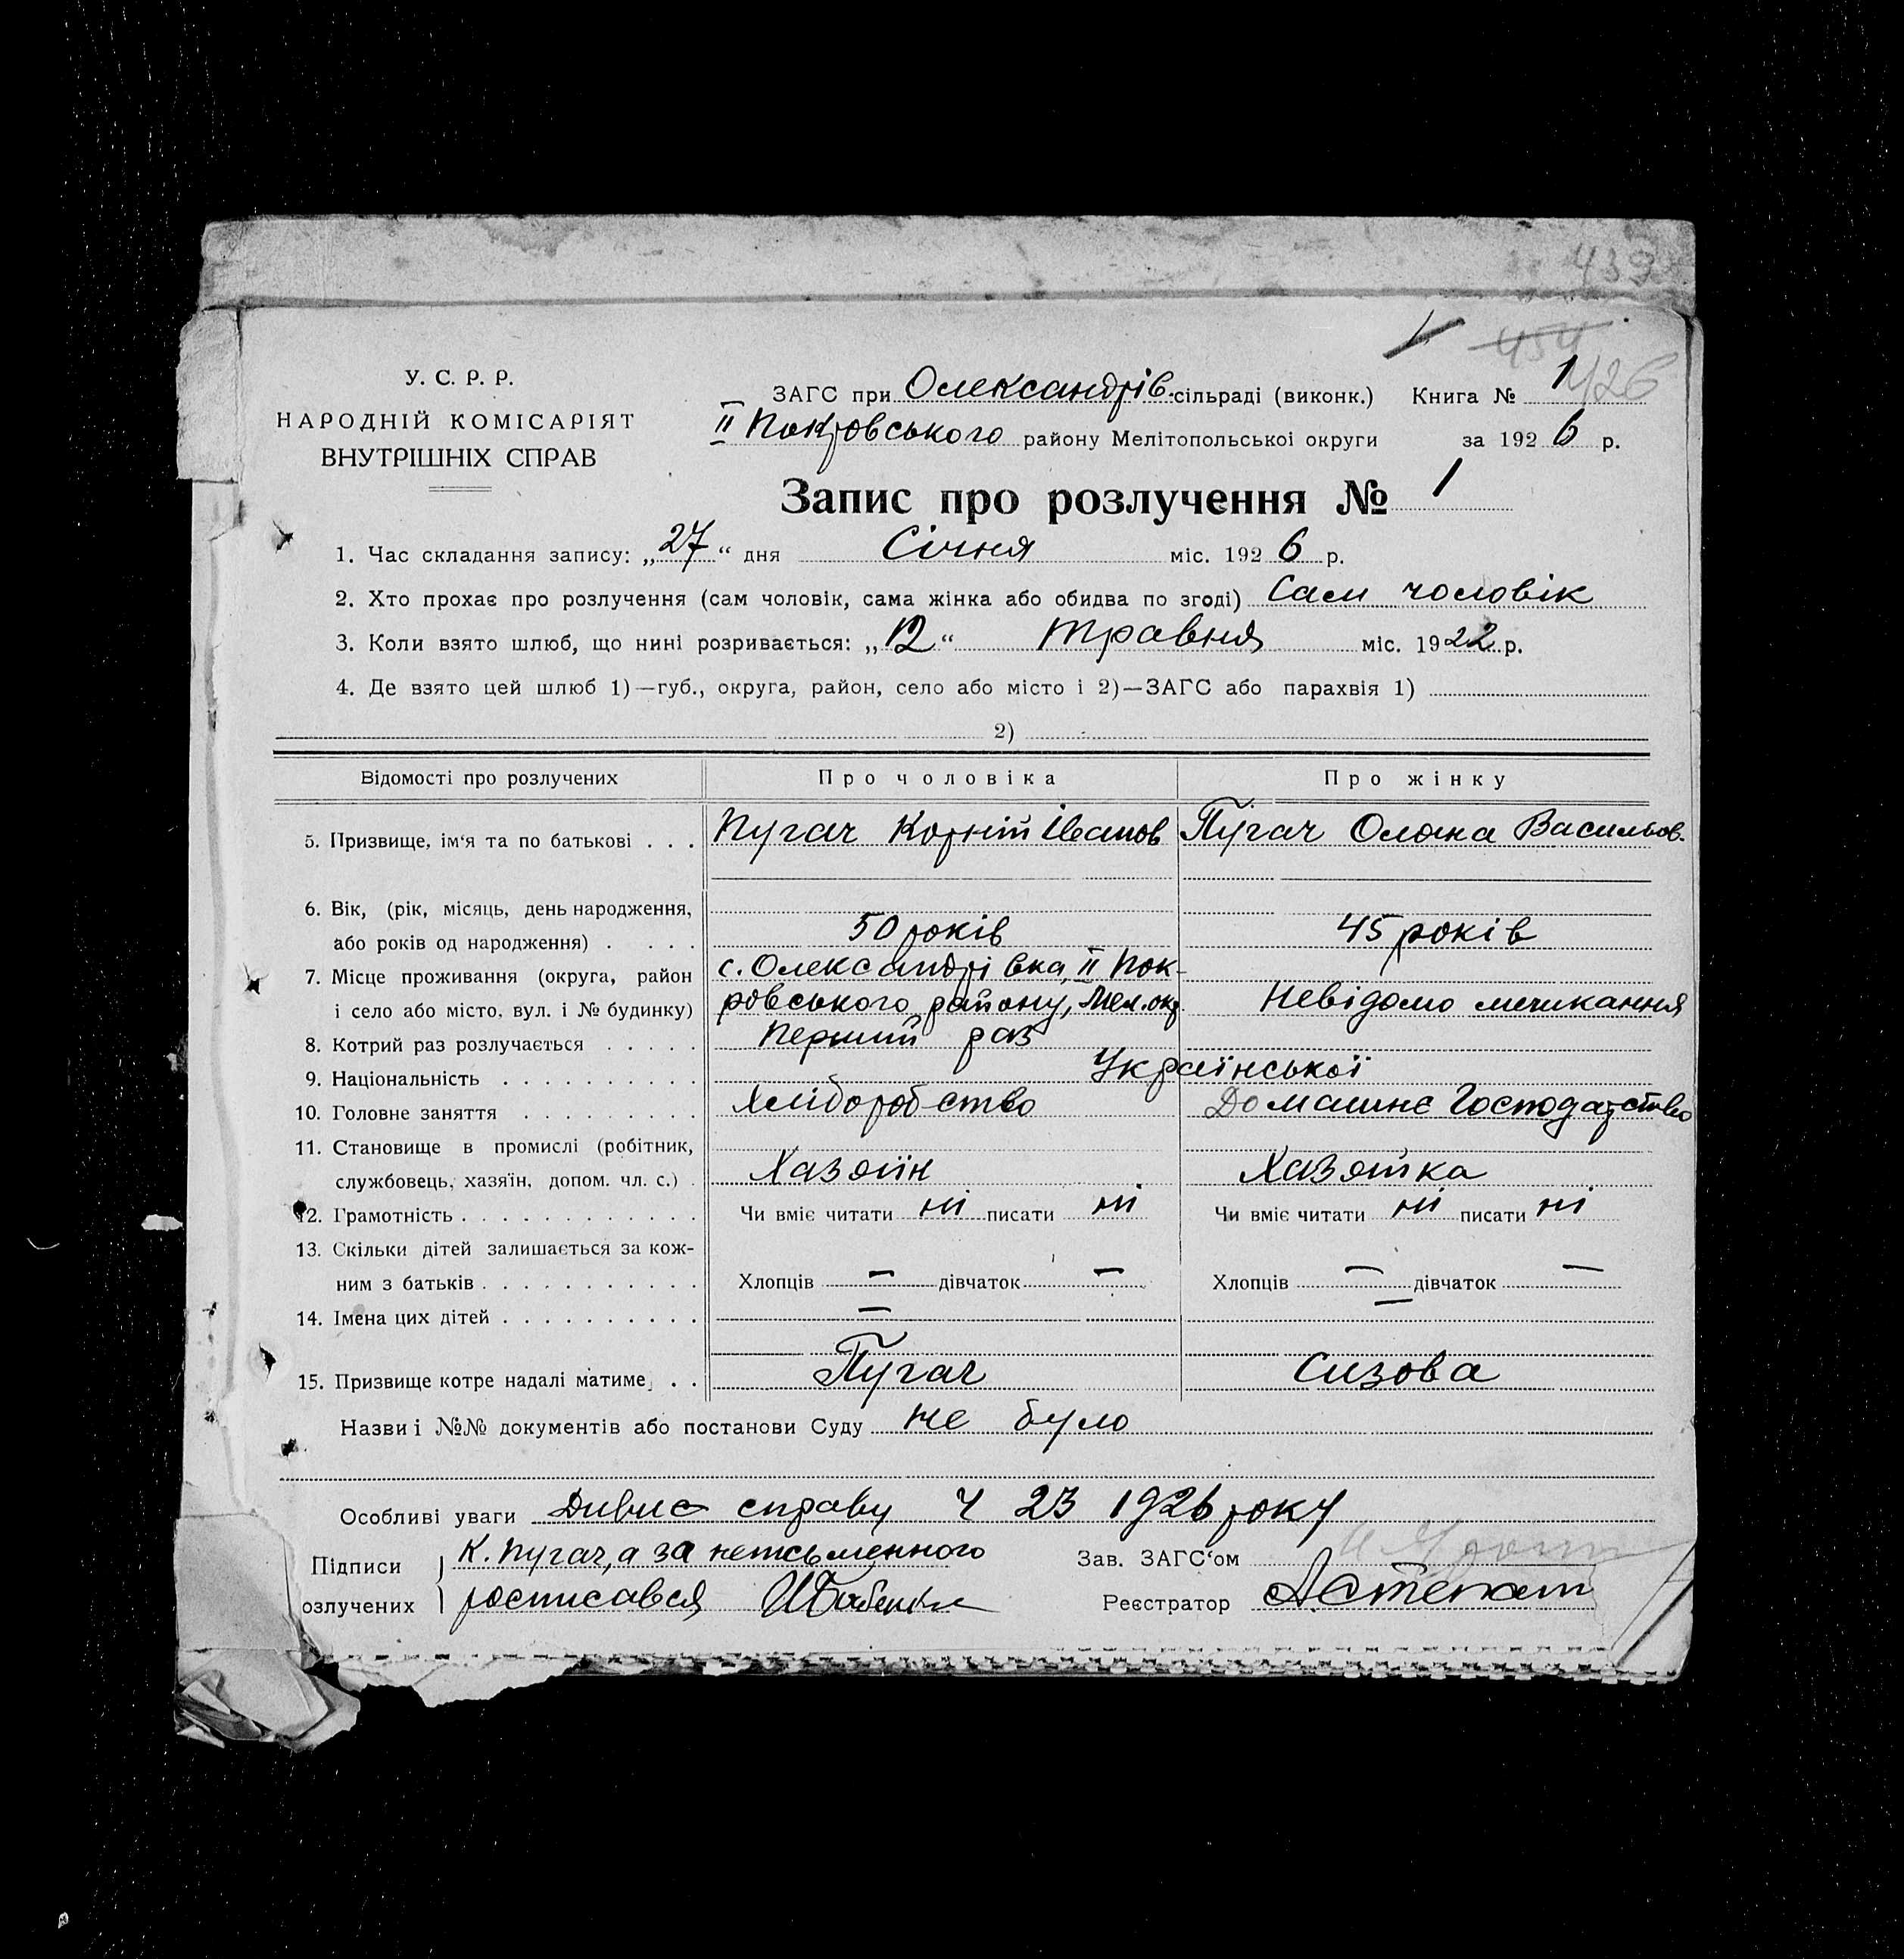 439
454
У. С. Р. Р.
НАРОДНІЙ КОМІСАРІЯТ
ВНУТРІШНІХ СПРАВ
ЗАГС при Олександрів. сільраді (виконк.) Книга № 1
1/26
ІІ Покровського району Мелітопольської округи за 1926 р.
Запис про розлучення № 1
1. Час складання запису: „27“ дня Січня міс. 1926 р.
2. Хто прохає про розлучення (сам чоловік, сама жінка або обидва по згоді) Сам чоловік
3. Коли взято шлюб, що нині розривається: „12“ травня міс. 1922 р.
4. Де взято цей шлюб 1)—губ., округа, район, село або місто і 2)—ЗАГС або парахвія 1)
2)
Відомості про розлучених Про чоловіка Про жінку
5. Призвище, ім‘я та по батькові . . . Пугач Корній Іванов Пугач Олена Васильов.
6. Вік, (рік, місяць, день народження,
або років од народження) . . . . 50 років 45 років
7. Місце проживання (округа, район с. Олександрівка, ІІ Пок-
і село або місто, вул. і № будинку) ровського району, Мел. окр. Невідомо мешкання
8. Котрий раз розлучається . . . . . Перший раз
9. Національність . . . . . . . . . . Української
10. Головне заняття . . . . . . . . . Хліборобство Домашнє Господарство
11. Становище в промислі (робітник,
службовець, хазяїн, допом. чл. с.) . Хазяїн Хазяйка
12. Грамотність . . . . . . . . . . . . Чи вміє читати ні писати ні Чи вміє читати ні писати ні
13. Скільки дітей залишається за кож-
ним з батьків . . . . . . . . . . . Хлопців — дівчаток — Хлопців — дівчаток —
14. Імена цих дітей . . . . . . . . . . — —
15. Призвище котре надалі матиме . . Пугач Сизова
Назви і №№ документів або постанови Суду не було
Особливі уваги Дивись справу Ч 23 1926 року
Підписи К. Пугач, а за неписьменного Зав. ЗАГС‘ом
озлучених росписався Реєстратор